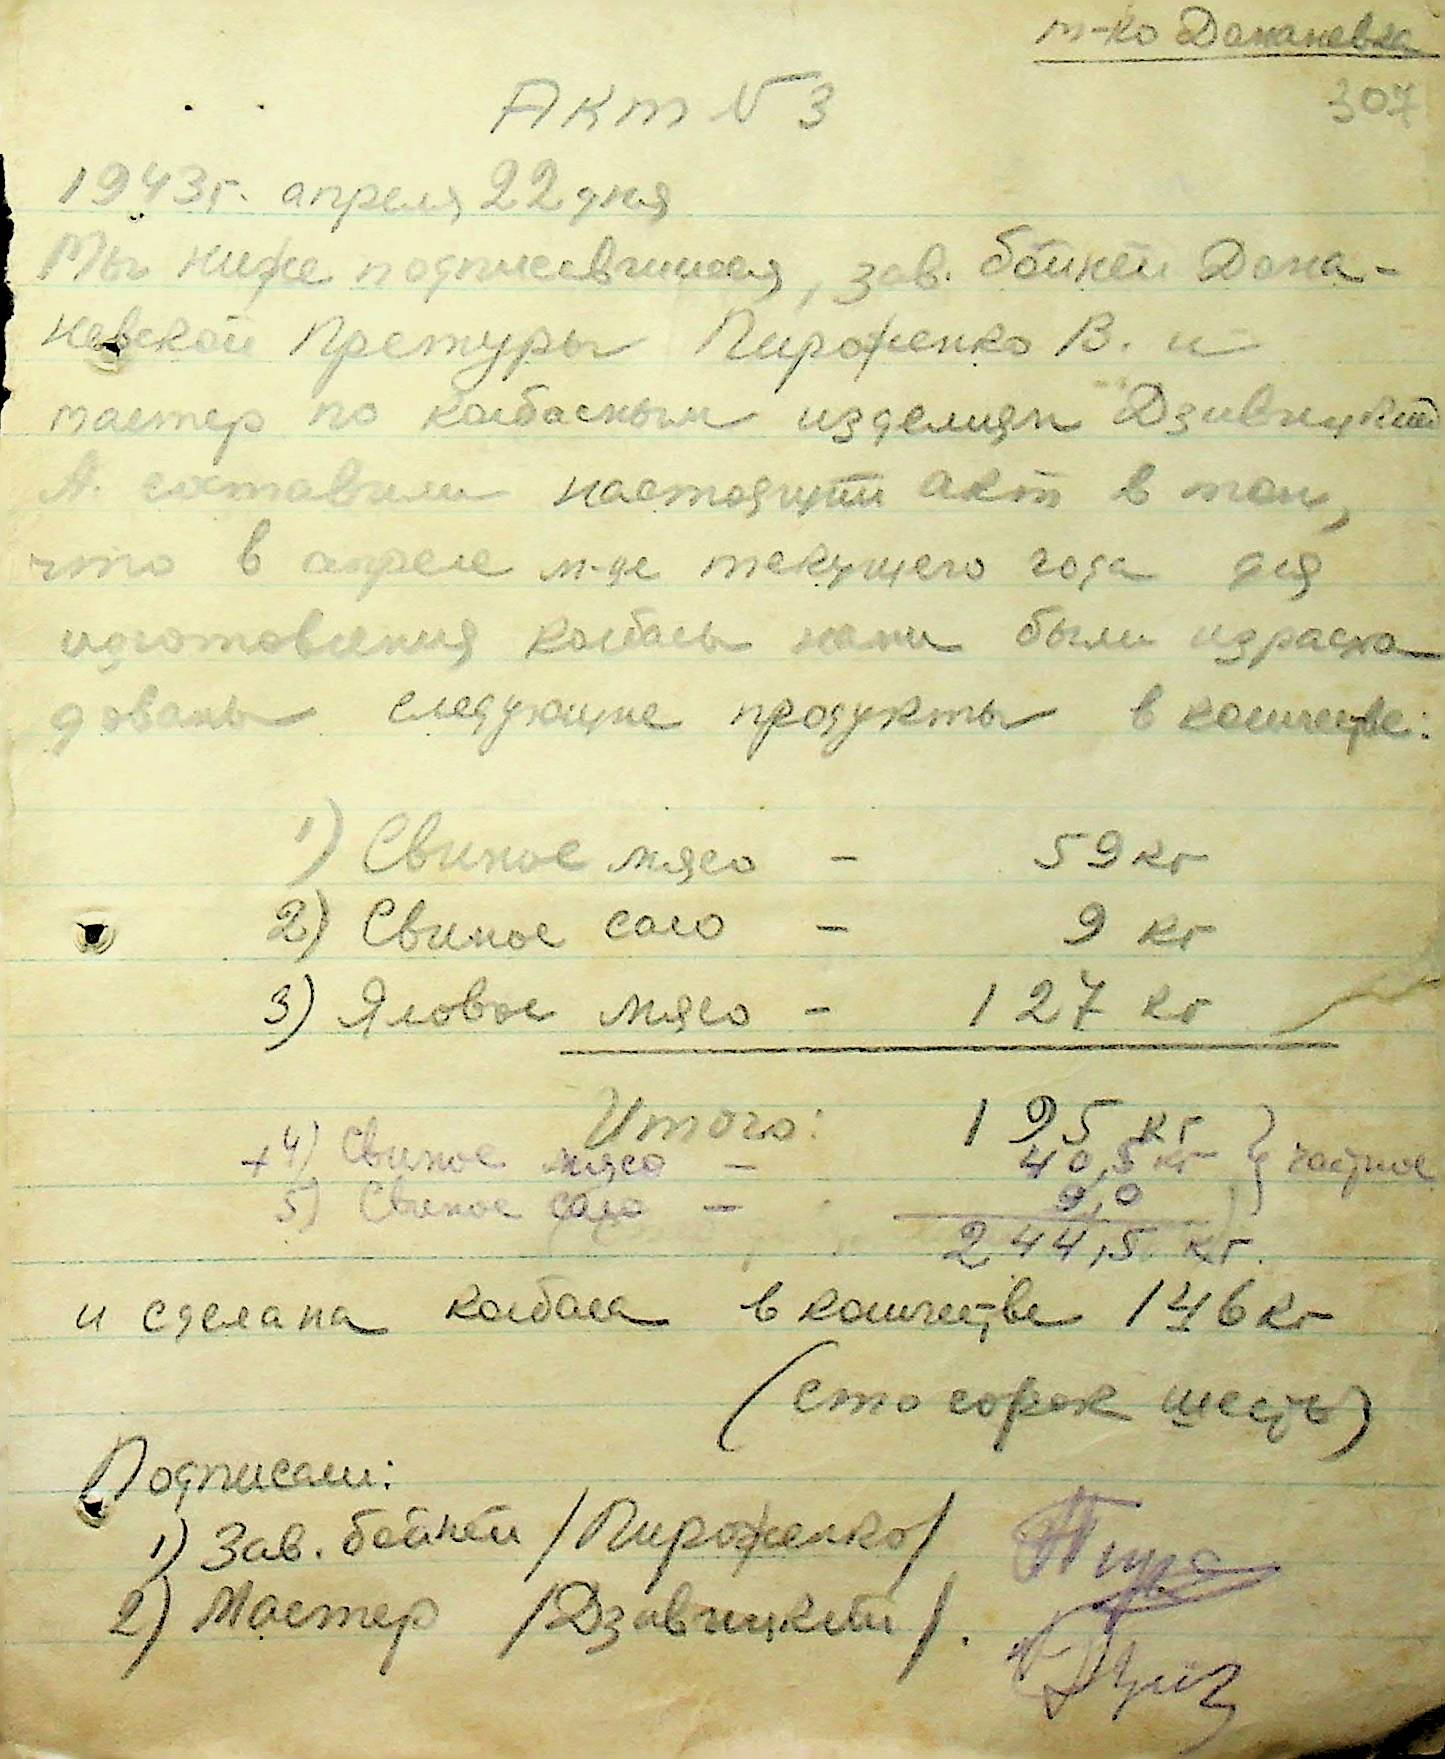 м-ко Доманевка
307
Акт № 3
1943г. апреля 22 дня
Мы ниже подписавшиеся, зав. бойней Дома-
невской Претуры Пироженко В. и
мастер по колбасным изделиям Дзивницкий
А. составили настоящий акт в том,
что в апреле м-це текущего года для
изготовления колбасы нами были израсхо
дованы следующие продукты в количестве:
1) Свиное мясо - 59 кг
2) Свиное сало - 9 кг
3) Яловое мясо - 127 кг
Итого: 195 кг
+4) Свиное мясо - 40,5 кг } частное
5) Свиное сало - 9,0
244,5 кг.
и сделана колбаса в количестве 146 кг
(сто сорок шесть)
Подписали:
1) Зав. бойней /Пироженко/
2) Мастер /Дзавницкий/.